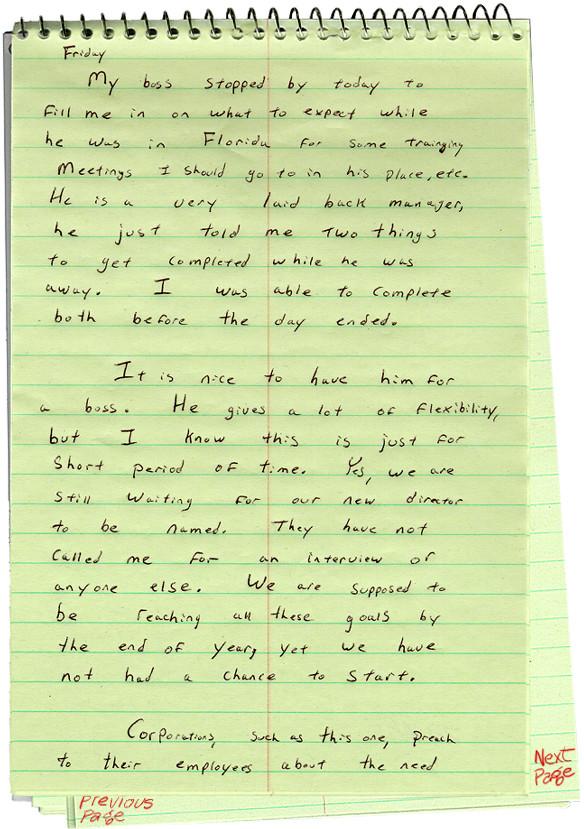 Friday
My boss stopped by today to
fill me in on what to expect while
he was in Florida for some trainging
Meetings I should go to in his place, etc.
He is a very laid back manager,
he just told me two things
to get completed while he was
away. I was able to complete
both before the day ended.
It is nice to have him for
a boss. He gives a lot of flexibility,
but I know this is just for
short period of time. Yes, we are
still waiting for our new director
to be named. They have not
called me for an interview or
anyone else. We are supposed to
be reaching all these goals by
the end of year, yet we have
not had a chance to start.
Corporations, such as this one, preach
to their employees about the need
Next
Page
Previous
Page